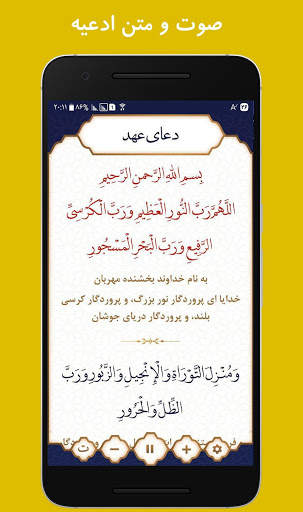 صوت و متن ادعیه
۲۰:۱۱ ۸۶%
۲۶
دعای عهد
بِسْمِ اللَّهِ الرَّحْمنِ الرَّحِيمِ
اللَّهُمَّ رَبَّ النُّورِ الْعَظِيمِ وَرَبَّ الْكُرْسِيِّ
الرَّفِيعِ وَرَبَّ الْبَحْرِ الْمَسْجُورِ
به نام خداوند بخشنده مهربان
خدایا ای پروردگار نور بزرگ، و پروردگار کرسی
بلند، و پروردگار دریای جوشان
وَمُنْزِلَ التَّوْرَاةِ وَالْإِنْجِيلِ وَالزَّبُورِ وَرَبَّ
الظِّلِّ وَالْحَرُورِ
ت